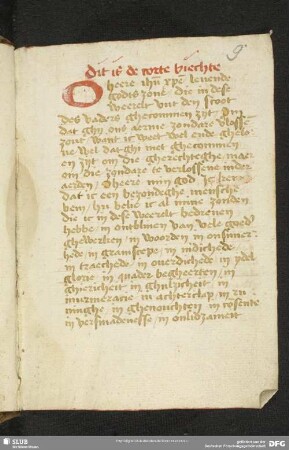 9
Dit is de corte biechte
O heere ihu xpe levende
godis zone die in dese
weerelt vut den scoot
des vaders ghecommen zyt Om
dat ghy ons aerme zondare
zout want ic weet wel ende ghelo
ve wel dat ghi niet ghecommen
en zyt om die gherechteghe maer
om die zondare te verlossene in der
aerden O heere myn god
dat ic een bezondeghe mensche
ben hu belie ic al mine zonden
die ic in dese weerelt bedreven
hebbe in ontbliven van vele goede
ghewerken in woorden in
hede in gramscepe in nidichede
in traechede in overdichede in ydel
glorie in quader begheerten in
ghierichede in ghulsicheit in
murmeracie in achterclap in
in ghenouchten in
in versmadenesse in
SLUB
DFG